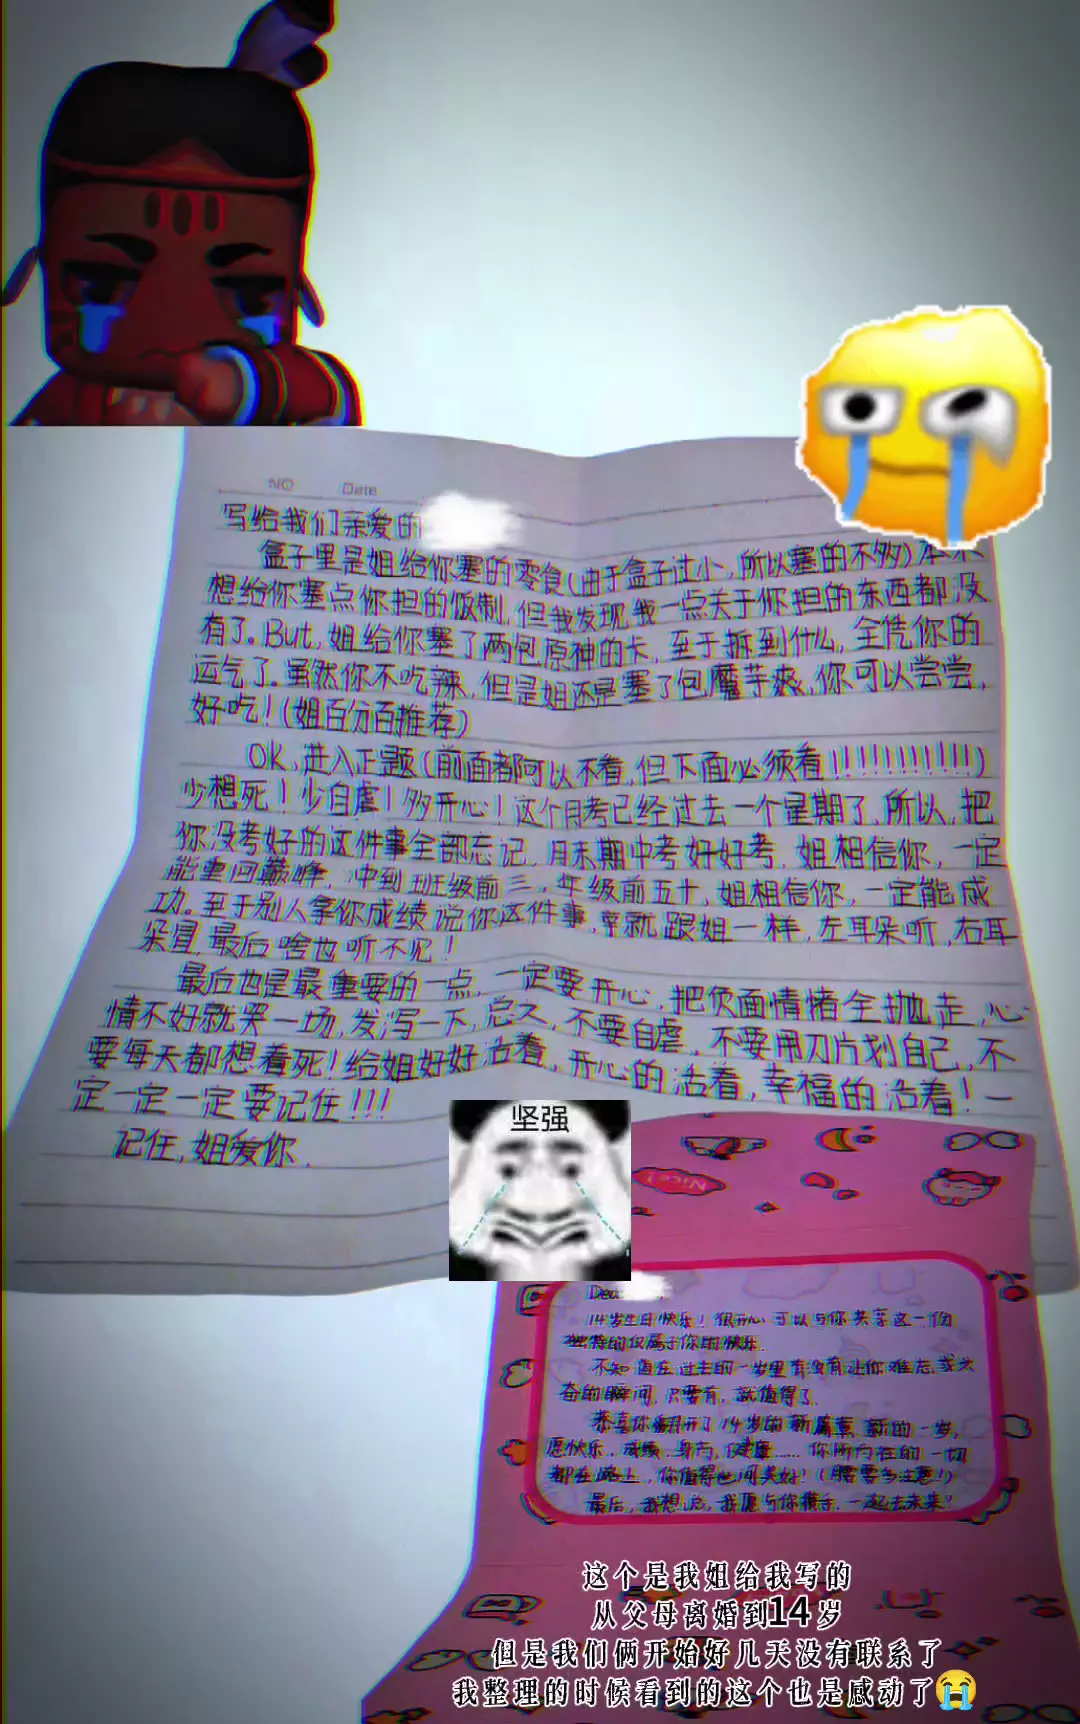 NO Date
写给我们亲爱的
盒子里是姐给你塞的零食(由于盒子过小,所以塞的不多)本来
想给你塞点你担的饭制,但我发现我一点关于你担的东西都没
有了。But,姐给你塞了两包原神的卡,至于拆到什么,全凭你的
运气了。虽然你不吃辣,但是姐还是塞了包魔芋爽,你可以尝尝,
好吃!(姐百分百推荐)
OK,进入正题(前面都可以不看,但下面必须看!!!!!!!!!!!!)
少想死!少自虐!多开心!这个月考已经过去一个星期了,所以,把
你没考好的这件事全部忘记,月末期中考好好考,姐相信你,一定
能重回巅峰,冲到班级前三,年级前五十,姐相信你,一定能成
功。至于别人拿你成绩说你这件事,就跟姐一样,左耳朵听,右耳
朵冒,最后啥也听不见!
最后也是最重要的一点,一定要开心,把负面情绪全抛走,心
情不好就哭一场,发泻一下,总之,不要自虐,不要用刀片划自己,不
要每天都想着死!给姐好好活着,开心的活着,幸福的活着!一
定一定一定要记住!!!
记住,姐爱你.
坚强
Nice!
Dea
14岁生日快乐!很开心可以与你共享这一份
独特的仅属于你的快乐.
不知道在过去的一岁里有没有让你难忘或兴
奋的瞬间,只要有,就值得了.
恭喜你翻开了14岁的新篇章,新的一岁,
愿快乐,成绩,身高,健康……你所向往的一切
都在路上,你值得世间美好!(腰要多注意!)
最后,我想说,我愿与你携手,一起去未来!
这个是我姐给我写的
从父母离婚到14岁
但是我们俩开始好几天没有联系了
我整理的时候看到的这个也是感动了😭